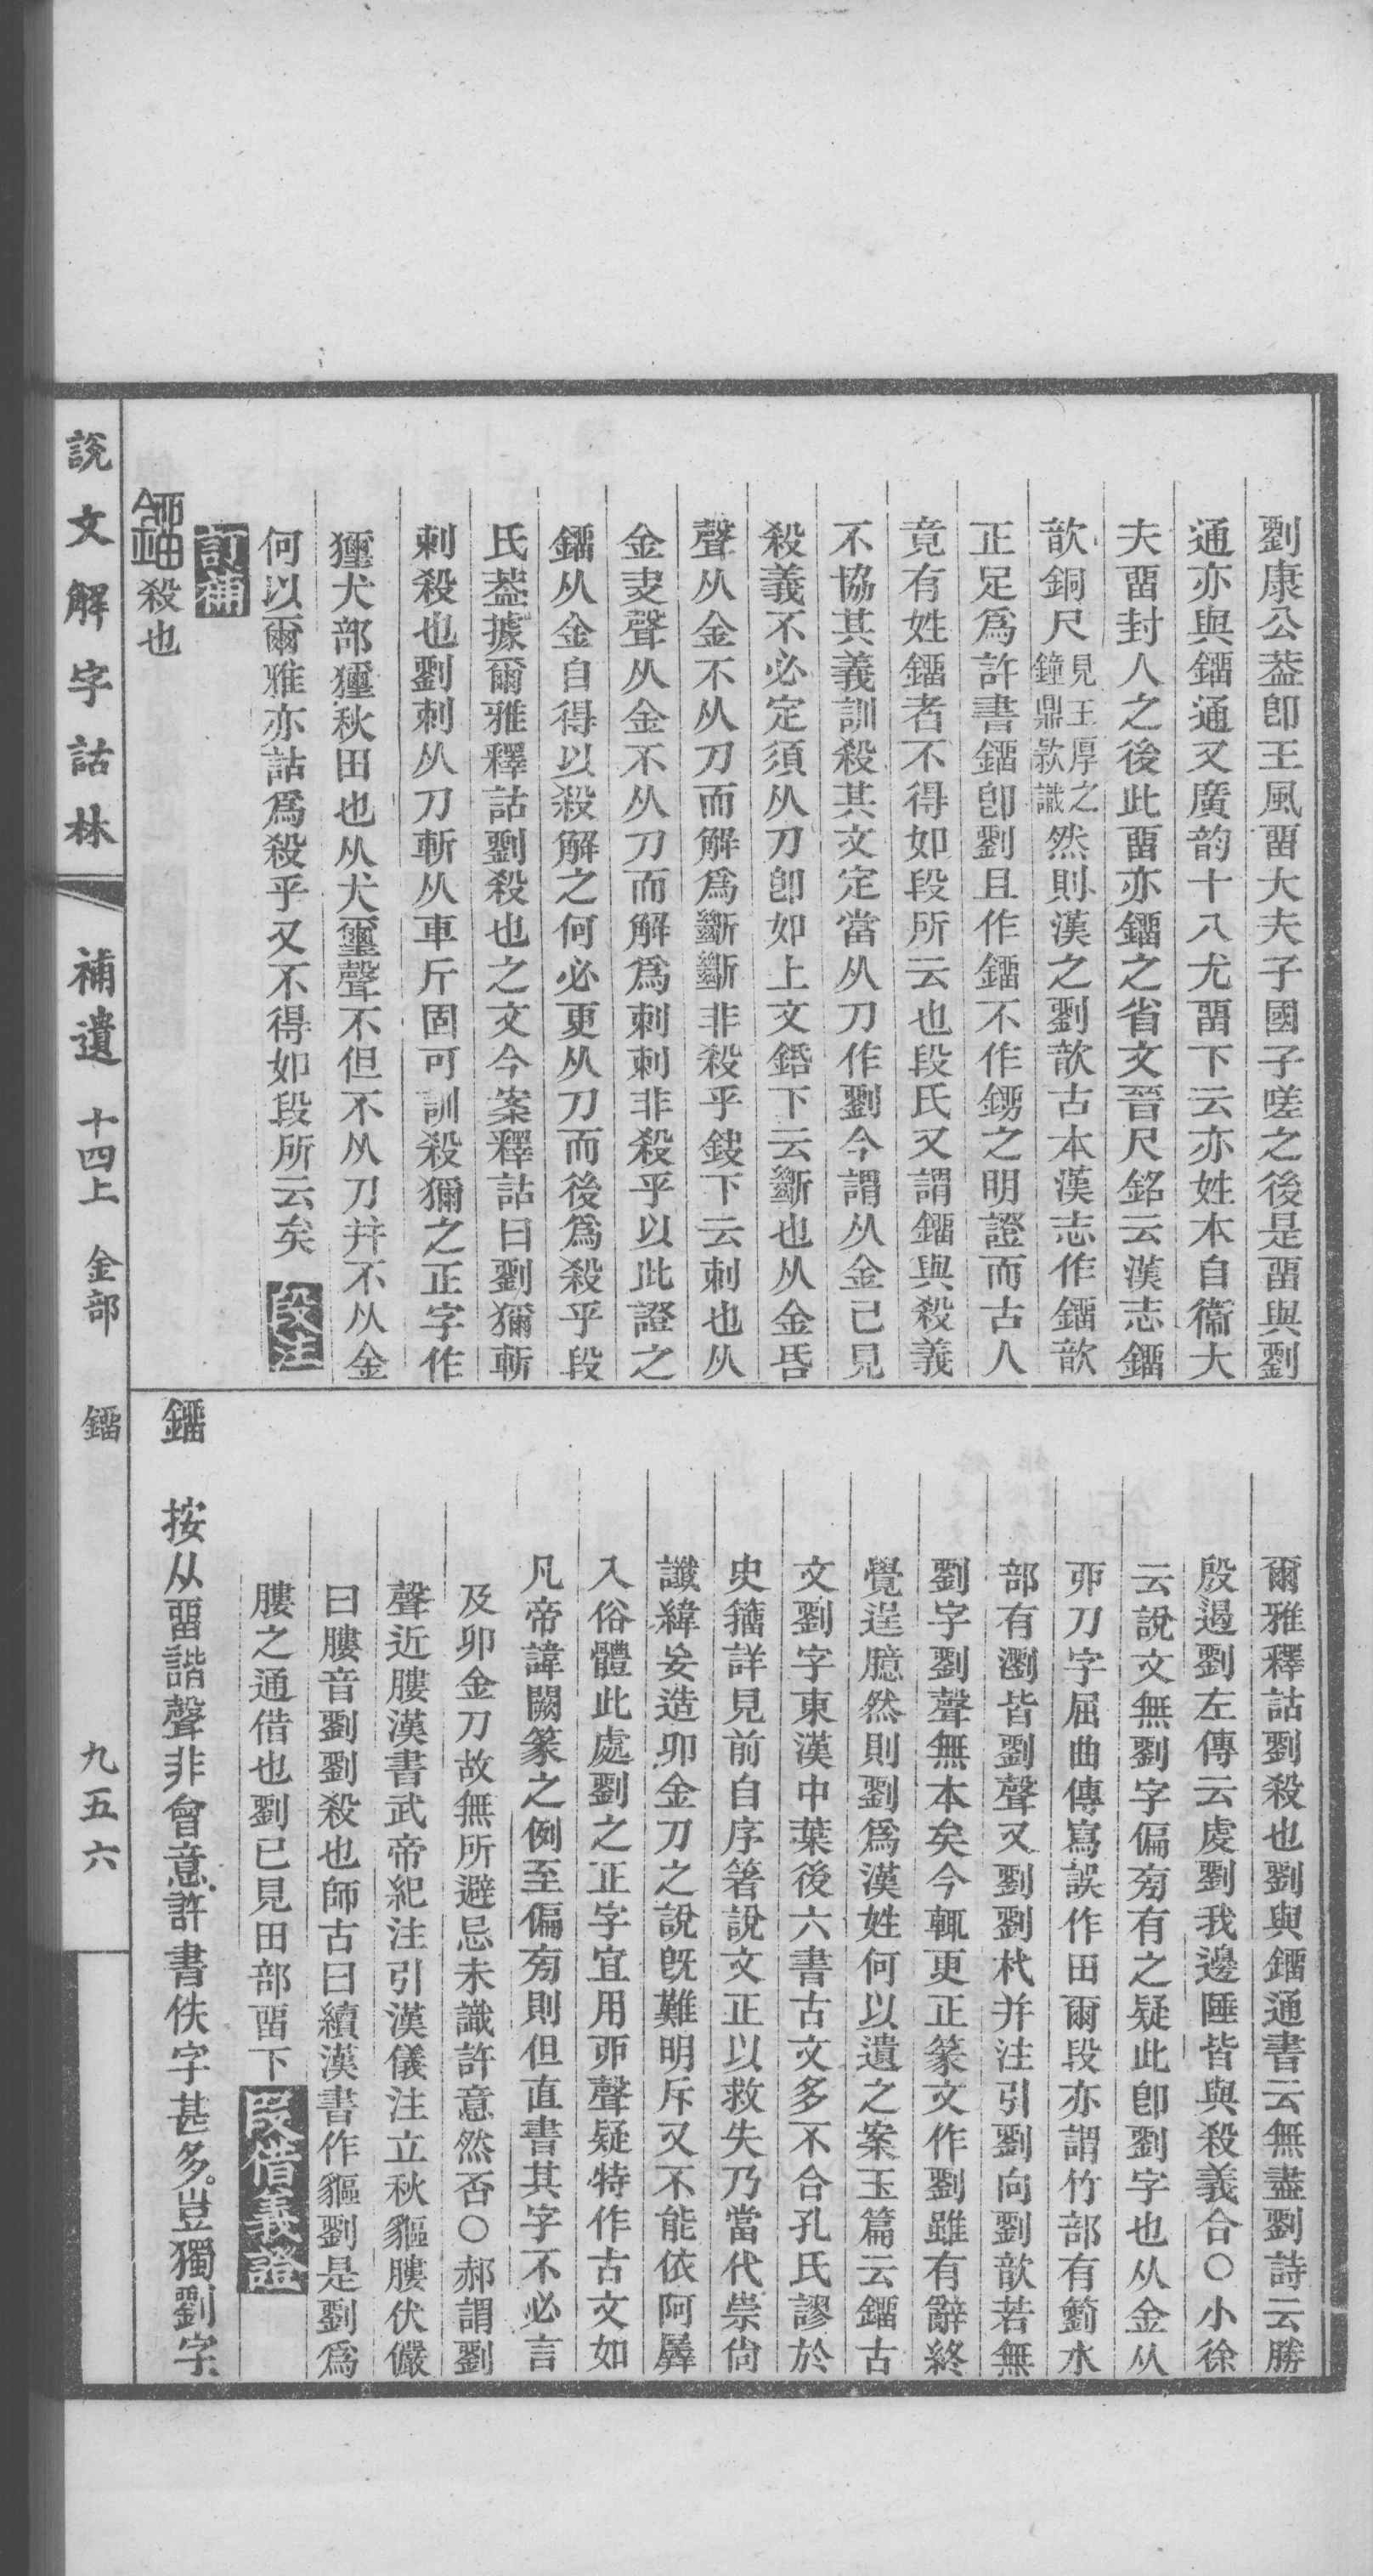 劉康公葢卽王風畱大夫子國子嗟之後是畱與劉
通亦與鎦通又廣韵十八尤畱下云亦姓本自衞大
夫畱封人之後此畱亦鎦之省文晉尺銘云漢志鎦
歆銅尺見王厚之鐘鼎欵識然則漢之劉歆古本漢志作鎦歆
正足爲許書鎦卽劉且作鎦不作鐒之明證而古人
竟有姓鎦者不得如段所云也段氏又謂鎦與殺義
不協其義訓殺其文定當从刀作劉今謂从金已見
殺義不必定須从刀卽如上文銽下云斷也从金昏
聲从金不从刀而解爲斷斷非殺乎鋟下云刺也从
金叏聲从金不从刀而解爲刺刺非殺乎以此證之
鎦从金自得以殺解之何必更从刀而後爲殺乎段
氏葢據爾雅釋詁劉殺也之文今案釋詁曰劉獮斬
刺殺也劉刺从刀斬从車斤固可訓殺獮之正字作
玃犬部玃秋田也从犬璽聲不但不从刀幷不从金
何以爾雅亦詁爲殺乎又不得如段所云矣 段注
訂補
鎦殺也
爾雅釋詁劉殺也劉與鎦通書云無盡劉詩云勝
殷遏劉左傳云虔劉我邊陲皆與殺義合○小徐
云說文無劉字偏旁有之疑此卽劉字也从金从
丣刀字屈曲傳寫誤作田爾段亦謂竹部有籀水
部有瀏皆劉聲又劉劉杙并注引劉向劉歆若無
劉字劉聲無本矣今輒更正篆文作劉雖有辭終
覺逞臆然則劉爲漢姓何以遺之案玉篇云鎦古
文劉字東漢中葉後六書古文多不合孔氏謬於
史籀詳見前自序箸說文正以救失乃當代祟尙
讖緯妄造卯金刀之說旣難明斥又不能依阿羼
入俗體此處劉之正字宜用丣聲疑特作古文如
凡帝諱闕篆之例至偏旁則但直書其字不必言
及卯金刀故無所避忌未識許意然否○郝謂劉
聲近膢漢書武帝紀注引漢儀注立秋貙膢伏儼
曰膢音劉劉殺也師古曰續漢書作貙劉是劉爲
膢之通借也劉已見田部畱下 段借義證
鎦 按从畱諧聲非會意許書佚字甚多。豈獨劉字
說文解字詁林 補遺 十四上 金部 鎦 九五六